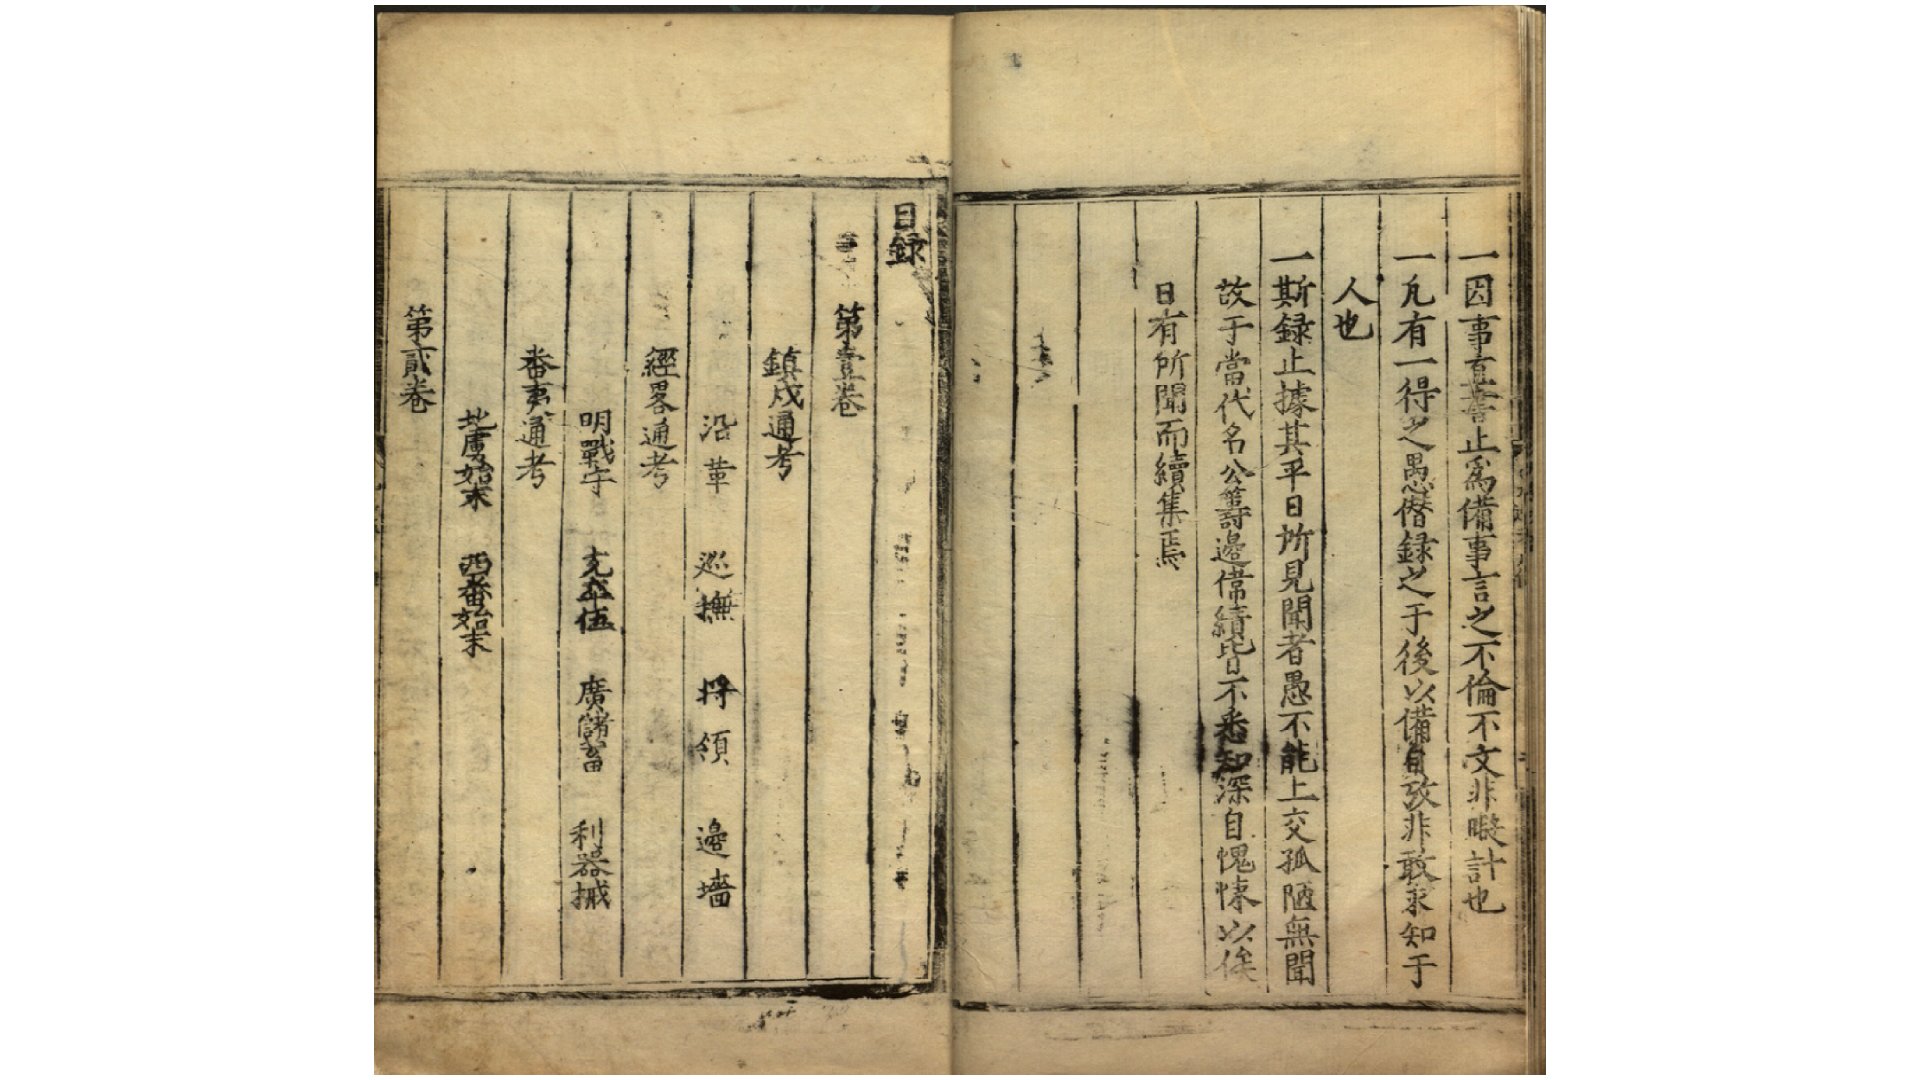 一因事直書止爲備事言之不倫不文非暇計也
一凡有一得之愚僣録之于後以備自攷非敢求知于
人也
一斯録止據其平日所見聞者愚不能上交孤陋無聞
故于當代名公籌邊偉績皆不悉知深自愧悚以俟
日有所聞而續集焉
目録
第壹卷
鎮戍通考
沿革 巡撫 將領 邊墻
經畧通考
明戰守 充卒伍 廣儲畜 利器械
番夷通考
北虜始末 西番始末
第貳卷